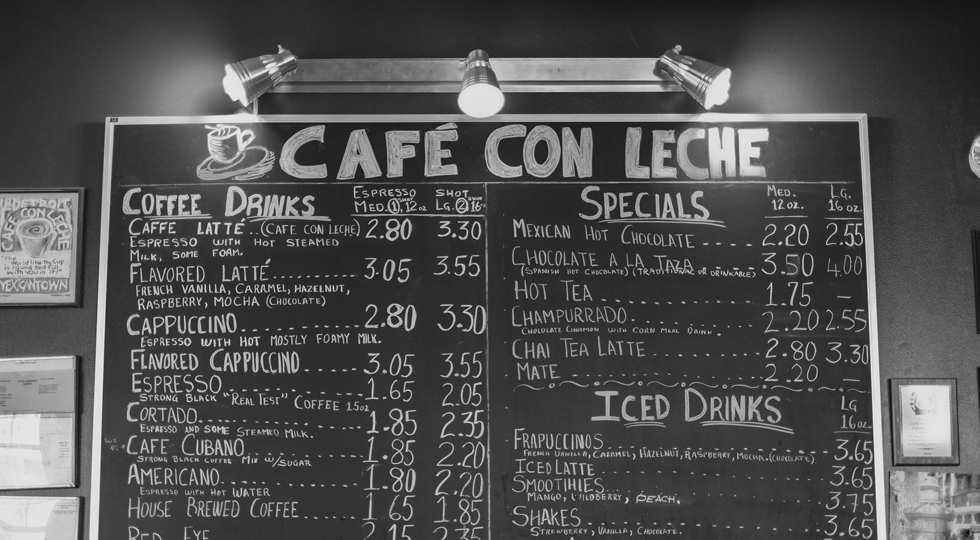 CAFÉ CON LECHE
COFFEE DRINKS
ESPRESSO SHOT
MED. 1 12oz LG. 2 16oz
CAFFE LATTÉ..(CAFE CON LECHE) 2.80 3.30
ESPRESSO WITH HOT STEAMED
MILK, SOME FORM.
FLAVORED LATTÉ 3.05 3.55
FRENCH VANILLA, CARAMEL, HAZELNUT,
RASPBERRY, MOCHA (CHOCOLATE)
CAPPUCCINO 2.80 3.30
ESPRESSO WITH HOT MOSTLY FOAMY MILK.
FLAVORED CAPPUCCINO 3.05 3.55
ESPRESSO 1.65 2.05
STRONG BLACK "REAL TEST" COFFEE 1.5oz
CORTADO 1.85 2.35
ESPRESSO AND SOME STEAMED MILK.
CAFE CUBANO 1.85 2.20
STRONG BLACK COFFEE MIX W/SUGAR
AMERICANO 1.80 2.20
ESPRESSO WITH HOT WATER
HOUSE BREWED COFFEE 1.65 1.85
RED EYE 2.15 2.35
SPECIALS
MED. LG.
12 oz. 16 oz.
MEXICAN HOT CHOCOLATE 2.20 2.55
CHOCOLATE A LA TAZA 3.50 4.00
(SPANISH HOT CHOCOLATE) (TRADITIONAL OR DRINKABLE)
HOT TEA 1.75 —
CHAMPURRADO 2.20 2.55
CHOCOLATE CINAMON WITH CORN MEAL DRINK.
CHAI TEA LATTE 2.80 3.30
MATE 2.20 —
ICED DRINKS
LG
16oz.
FRAPUCCINOS 3.65
FRENCH VANILLA, CARAMEL, HAZELNUT, RASPBERRY, MOCHA.(CHOCOLATE)
ICED LATTE 3.65
SMOOTHIES 3.75
MANGO, WILDBERRY, PEACH.
SHAKES 3.65
STRAWBERRY, VANILLA, CHOCOLATE.
CAFÉ CON LECHE